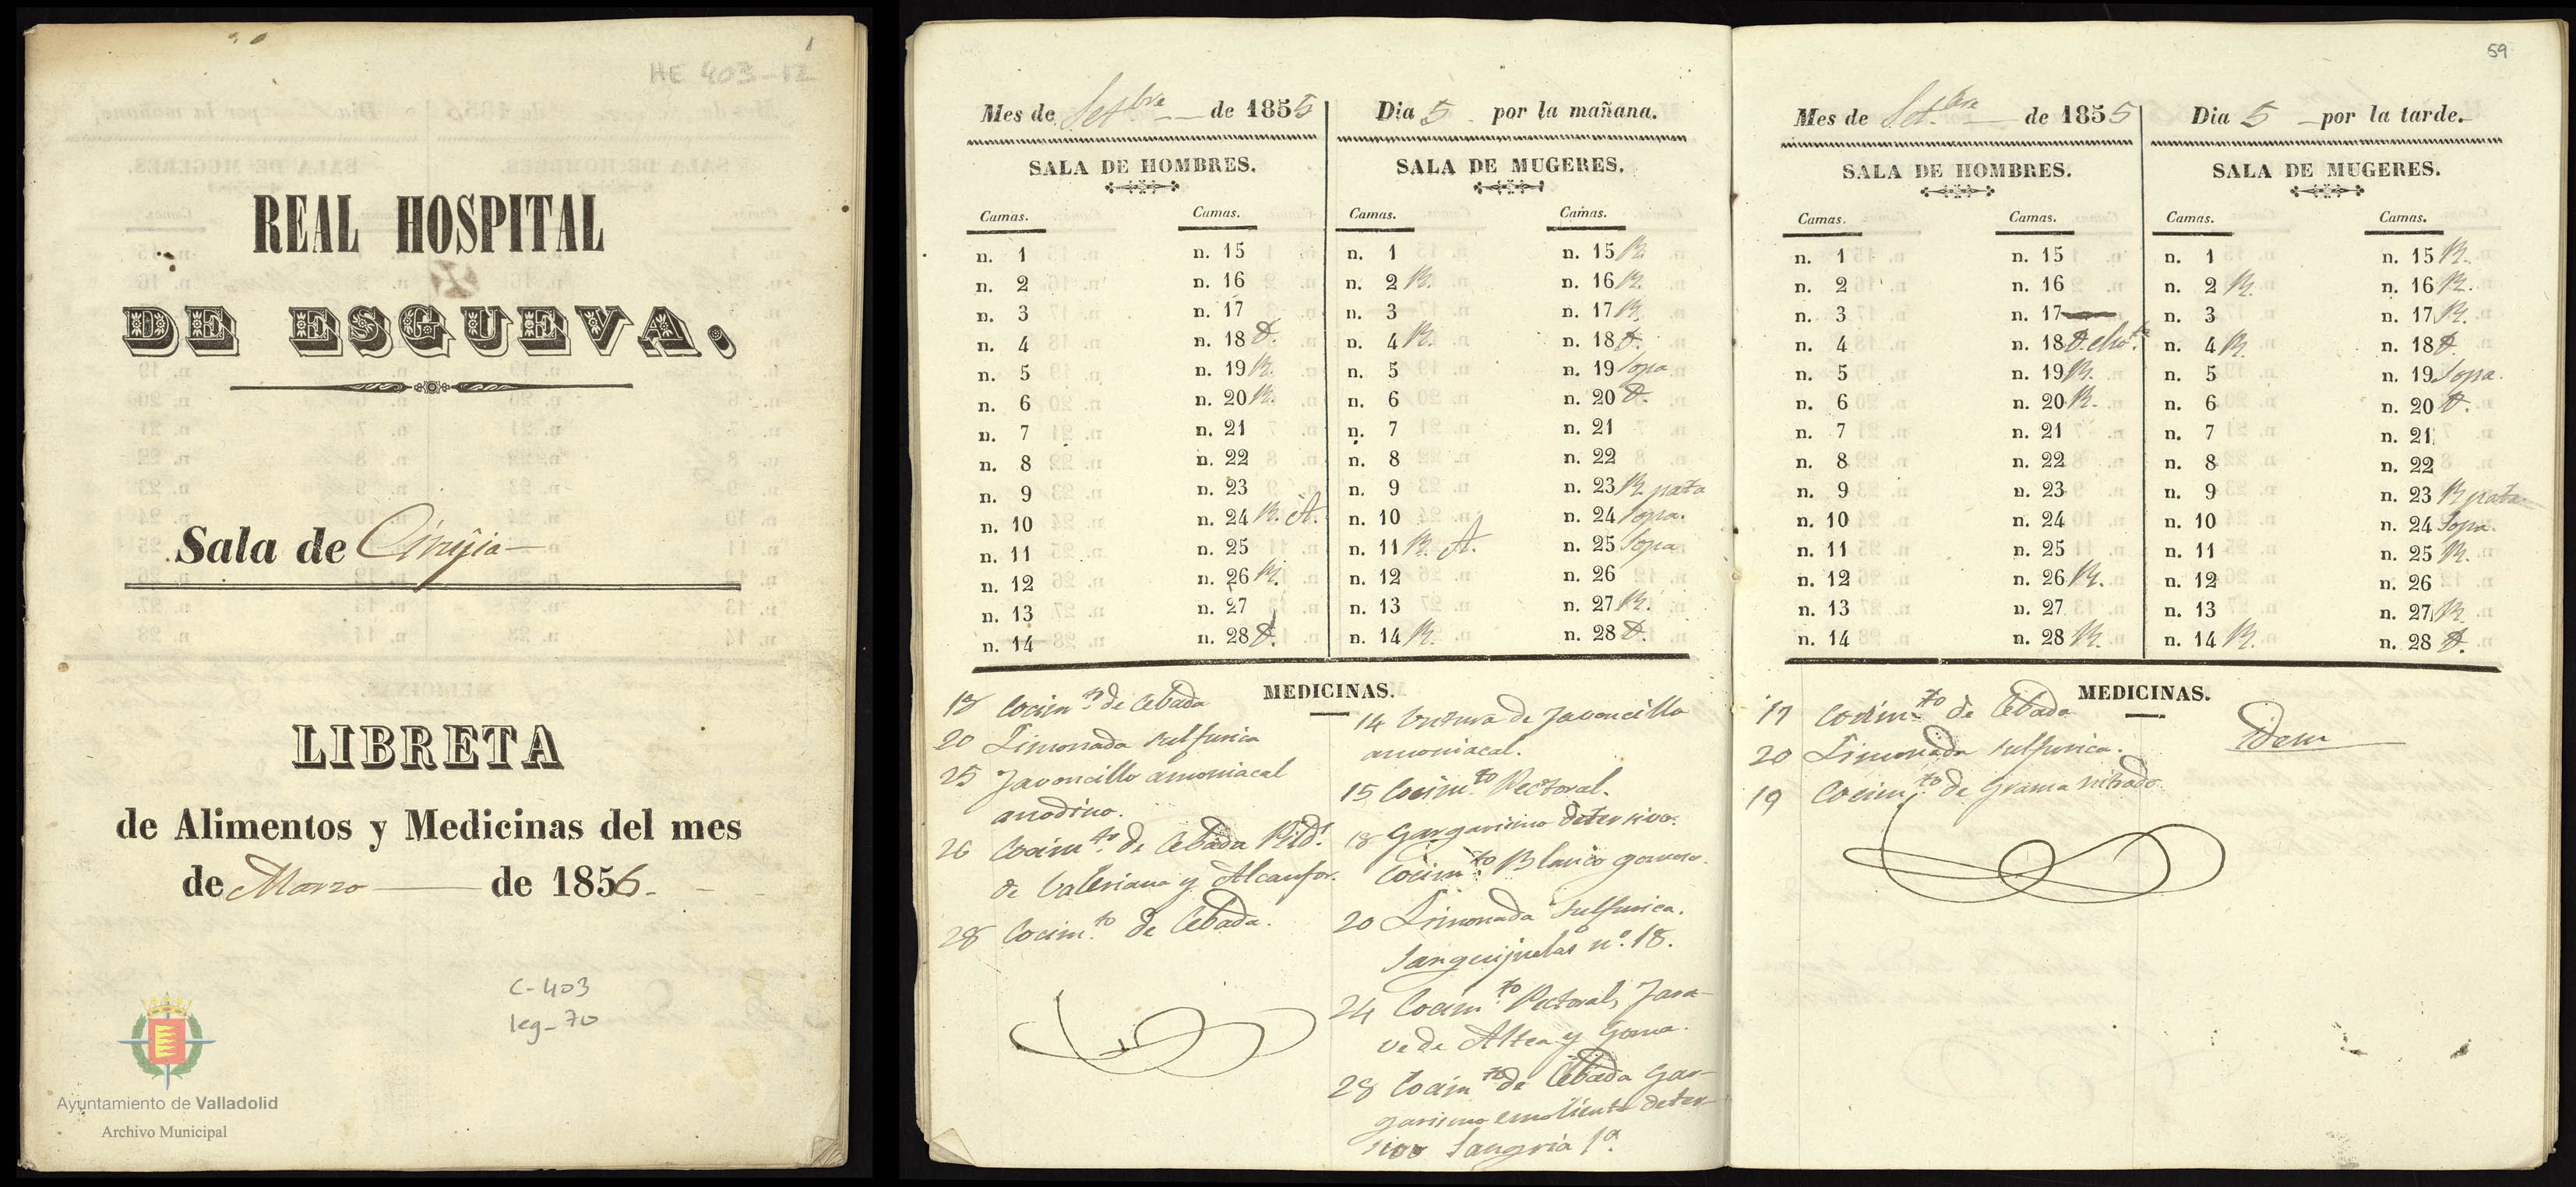 1
HE 403-12
REAL HOSPITAL
DE ESGUEVA.
Sala de Cirujia
LIBRETA
de Alimentos y Medicinas del mes
de Marzo de 1856.
C-403
leg-70
Ayuntamiento de Valladolid
Archivo Municipal
Mes de Set.bre de 1855 Dia 5 por la mañana.
SALA DE HOMBRES. SALA DE MUGERES.
Camas. Camas. Camas. Camas.
n. 1 n. 15 n. 1 n. 15 R.
n. 2 n. 16 n. 2 R. n. 16 R.
n. 3 n. 17 n. 3 n. 17 R.
n. 4 n. 18 D. n. 4 R. n. 18 D.
n. 5 n. 19 R. n. 5 n. 19 Sopa
n. 6 n. 20 R. n. 6 n. 20 D.
n. 7 n. 21 n. 7 n. 21
n. 8 n. 22 n. 8 n. 22
n. 9 n. 23 n. 9 n. 23 R. pata
n. 10 n. 24 R. A. n. 10 n. 24 Sopa.
n. 11 n. 25 n. 11 R. A. n. 25 Sopa
n. 12 n. 26 R. n. 12 n. 26
n. 13 n. 27 n. 13 n. 27 R.
n. 14 n. 28 D. n. 14 R. n. 28 D.
MEDICINAS.
18 Cocim.to de Cebada
20 Limonada sulfurica
25 Javoncillo amoniacal
anodino.
26 Cocim.to de Cebada Pild.s
de Valeriana y Alcanfor.
28 Cocim.to de Cebada.
14 Untura de Javoncillo
amoniacal.
15 Cocim.to Pectoral.
18 Gargarismo detersivo.
Cocim.to Blanco gomoso.
20 Limonada Sulfurica.
Sanguijuelas n.º 18.
24 Cocim.to Pectoral, Jara-
ve de Altea y Goma.
28 Cocim.to de Cebada Gar-
garismo emoliente deter-
sivo Sangria 1ª.
59
Mes de Set.bre de 1855 Dia 5 por la tarde.
SALA DE HOMBRES. SALA DE MUGERES.
Camas. Camas. Camas. Camas.
n. 1 n. 15 n. 1 n. 15 R.
n. 2 n. 16 n. 2 R. n. 16 R.
n. 3 n. 17 n. 3 n. 17 R.
n. 4 n. 18 D. n. 4 R. n. 18 D.
n. 5 n. 19 R. n. 5 n. 19 Sopa.
n. 6 n. 20 R. n. 6 n. 20 D.
n. 7 n. 21 n. 7 n. 21
n. 8 n. 22 n. 8 n. 22
n. 9 n. 23 n. 9 n. 23 R pata
n. 10 n. 24 n. 10 n. 24 Sopa
n. 11 n. 25 n. 11 n. 25 R.
n. 12 n. 26 R. n. 12 n. 26
n. 13 n. 27 n. 13 n. 27 R.
n. 14 n. 28 R. n. 14 R. n. 28 D.
MEDICINAS.
17 Cocim.to de Cebada
20 Limonada sulfurica.
19 Cocim.to de Grama nitrado
Idem